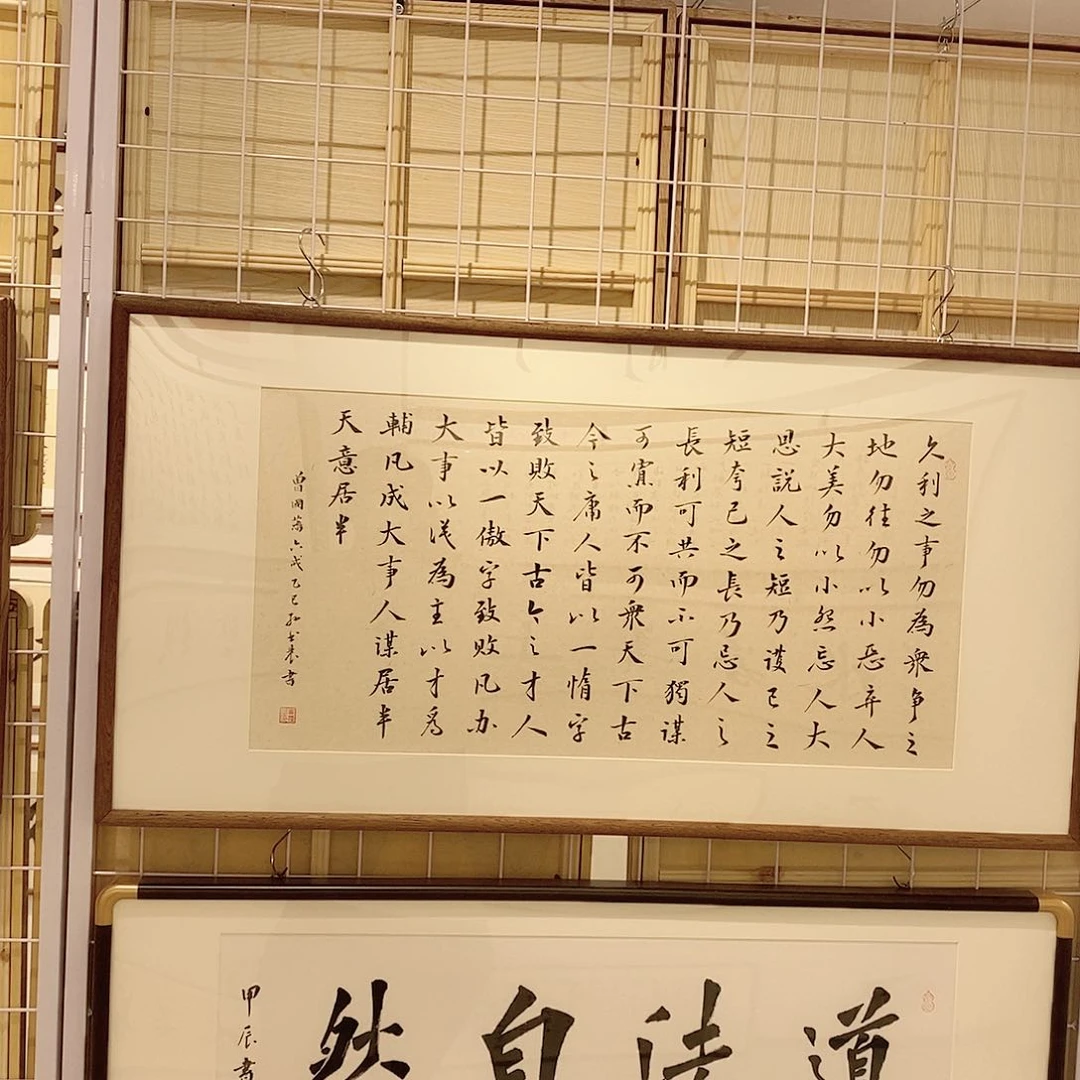 久利之事勿為衆争之
地勿往勿以小惡弃人
大美勿以小怨忘人大
恩説人之短乃護己之
短夸己之長乃忌人之
長利可共而不可獨謀
可寡而不可衆天下古
今之庸人皆以一惰字
致敗天下古今之才人
皆以一傲字致敗凡办
大事以识為主以才為
輔凡成大事人謀居半
天意居半
曾國藩六戒乙巳 書
道法自然
甲辰書